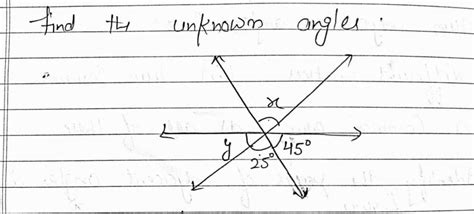 find the unknown angles :
x
y 25° 45°